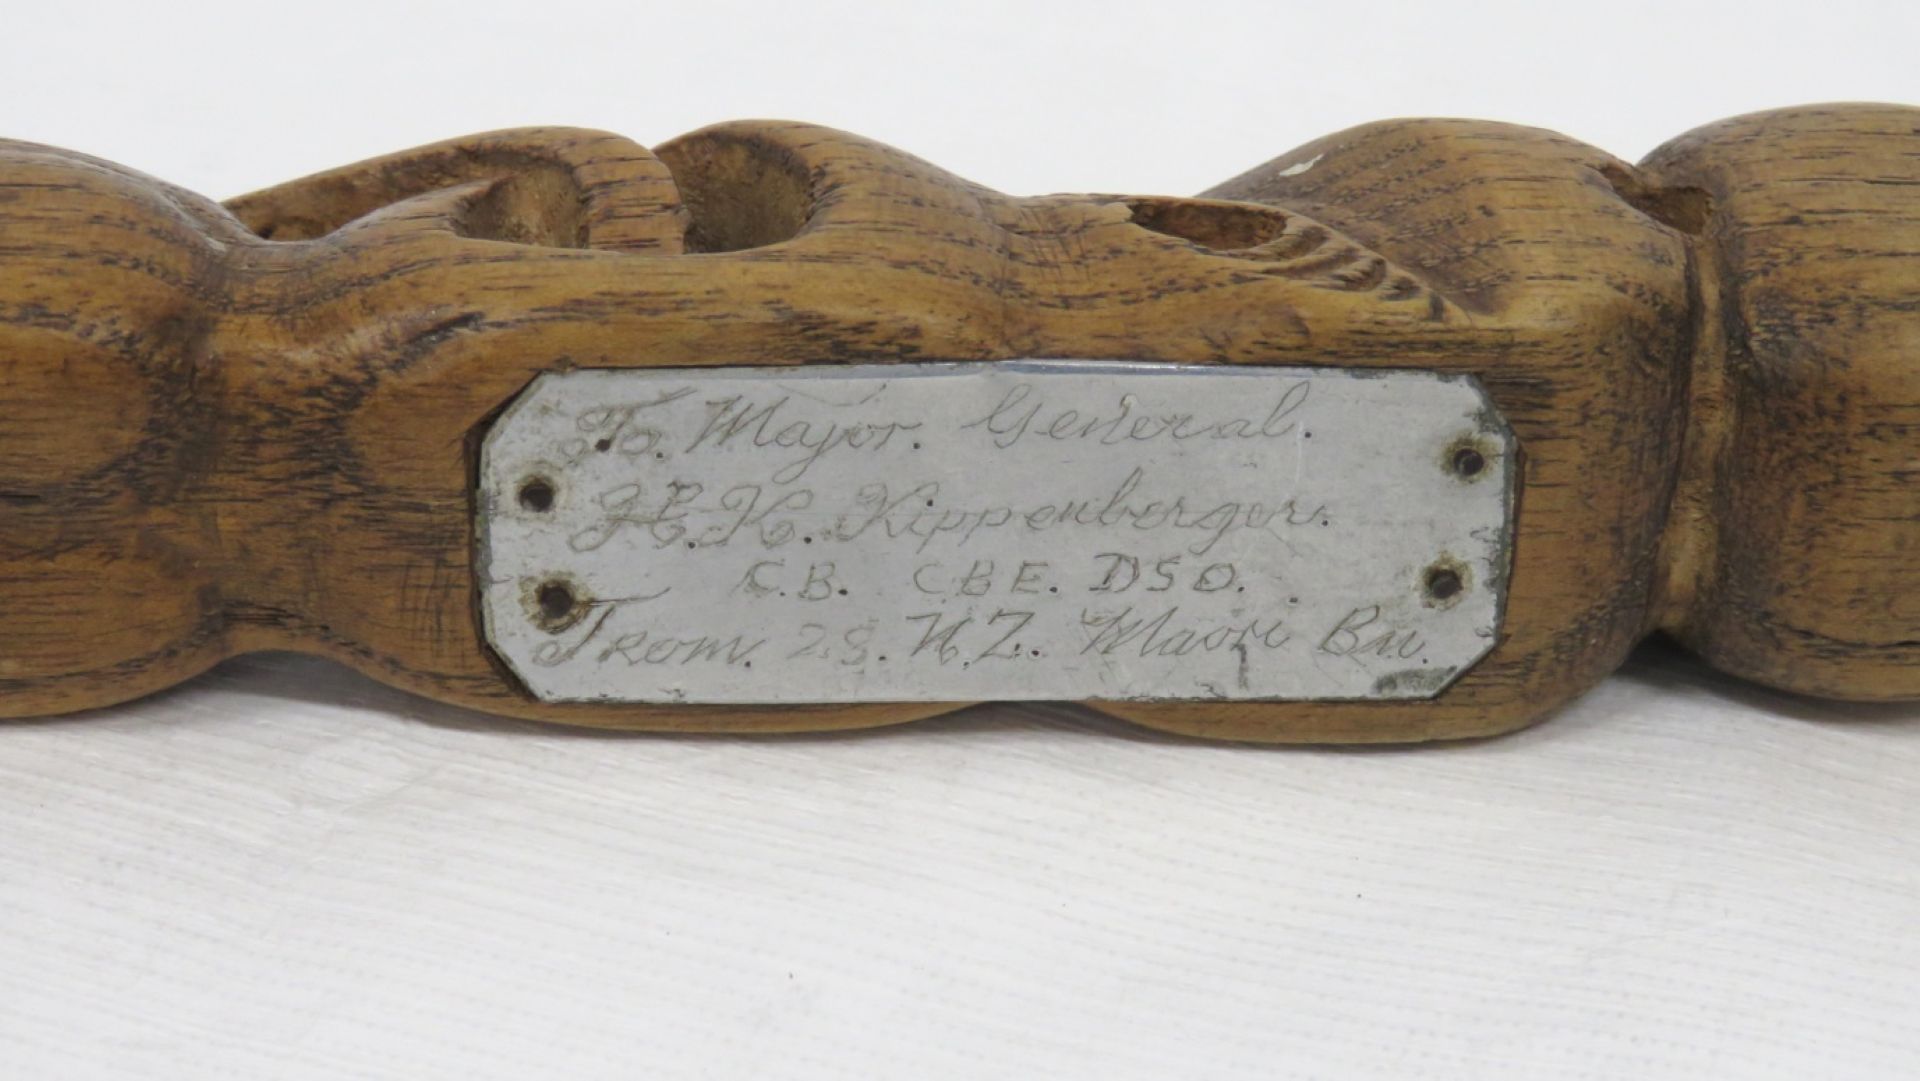 To. Major. General.
H.K. Kippenberger.
C.B. CBE. DSO.
From. 28. N.Z. Maori Bn.